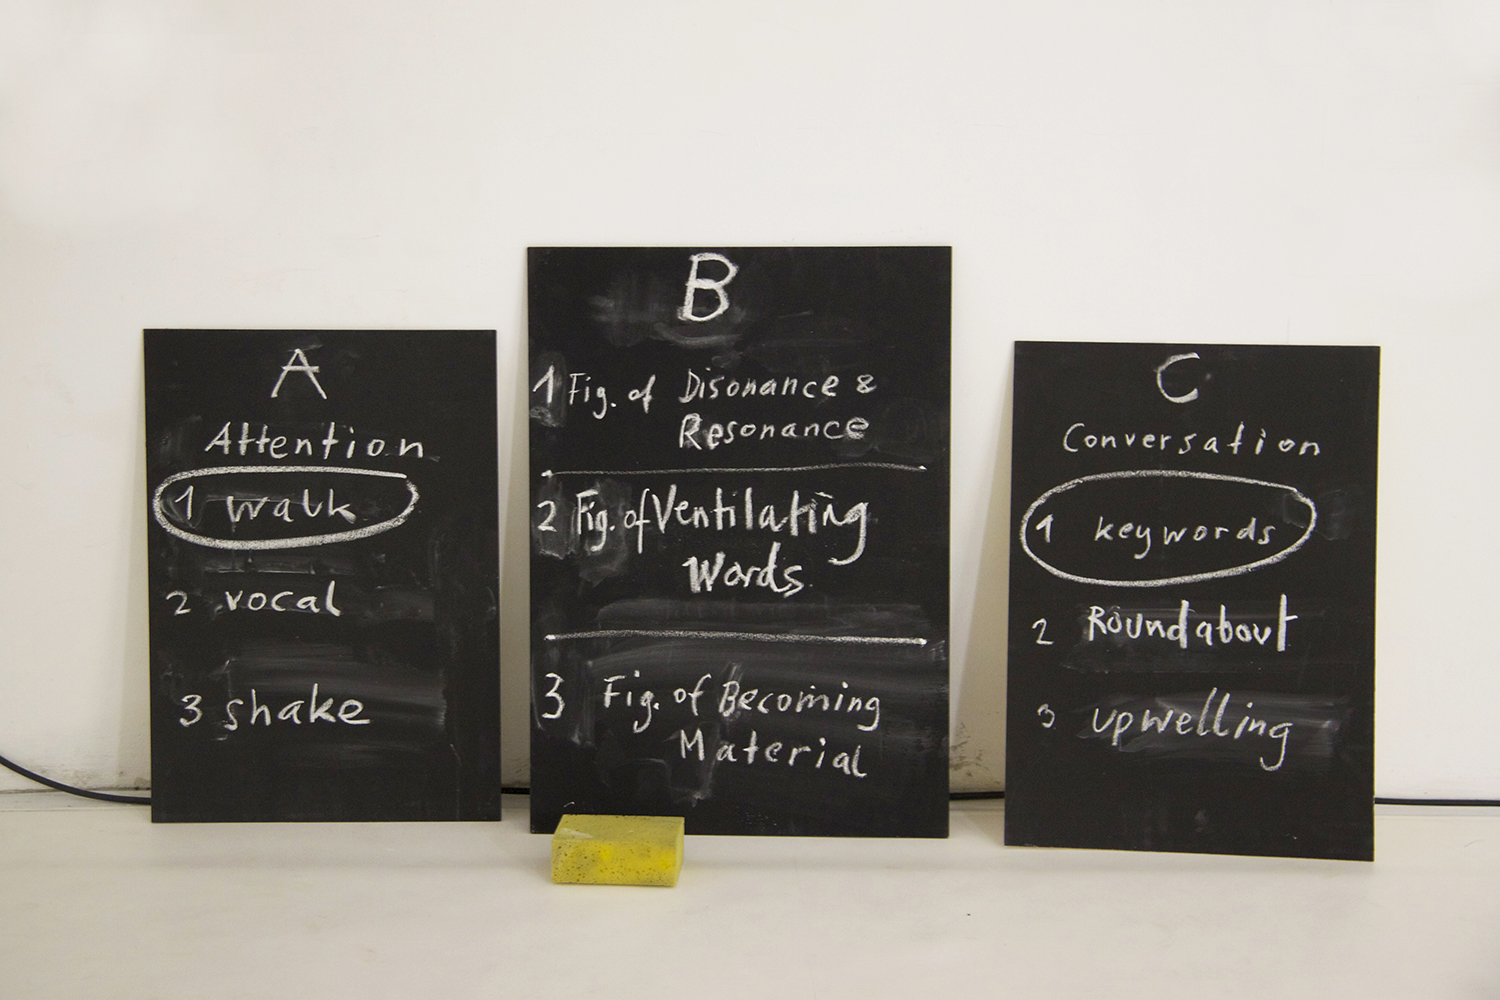 A
Attention
1 walk
2 vocal
3 shake
B
1 Fig. of Disonance &
Resonance
2 Fig. of Ventilating
Words
3 Fig. of Becoming
Material
C
Conversation
1 keywords
2 Roundabout
3 upwelling